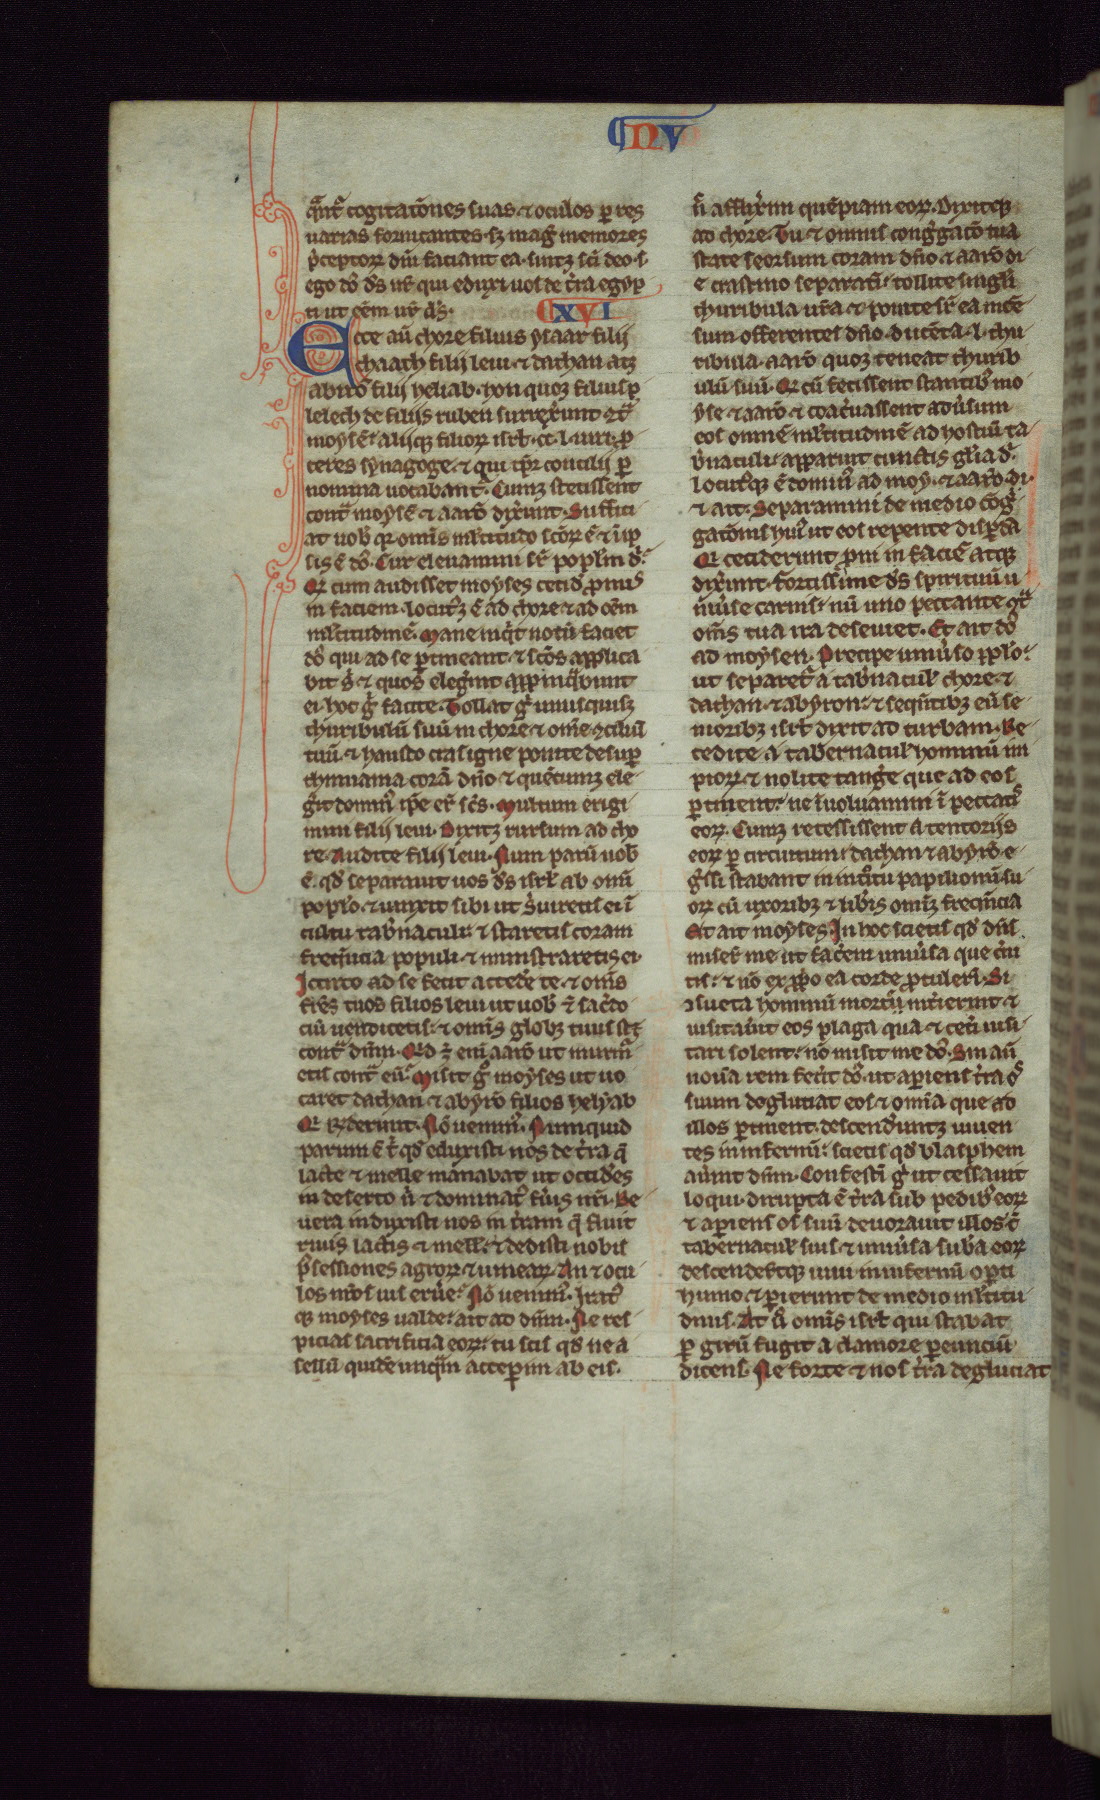 NV
q̄nt᷑ cogitatōnes suas ⁊ oculos ꝑ res
uarias fornicantes sꝫ mag̃ memores
p̄ceptoꝝ dn̄i faciant ea sintꝫ sc̄i deo
ego dn̄s ds̄ ur̄ qui eduxi uos de t̄ra egyp
ti ut eēm ur̄ ds̄.
XVI
Ecce aū chore filius ysaar filij
chaath filij leui ⁊ dathan atꝫ
abirō filij heliab hon quoꝫ filius p
lelech de filijs ruben surrexerunt ꝯt̄
moysēs alijꝫ filioꝝ isrl̄ cc l uiri ꝓ
ceres synagoge ⁊ qui tp̄r concilij ꝑ
nomina uocabant᷑ Cumꝫ stetissent
cont̄ moysē ⁊ aarō dixerunt Suffici
at uob̄ qꝛ omīs ml̄titudo sc̄oꝝ ē ⁊ in ip
sis ē dn̄s Cur eleuamini sr̄ popl̄m dn̄i
Qd̄ cum audisset moyses cecid̄ pronus
in faciem locut᷒ꝫ ē ad chore ⁊ ad oēm
ml̄titudinē Mane inq̄t notū faciet
dn̄s qui ad se ꝑtineant ⁊ sc̄os applica
bit s̄ ⁊ quos elegerit appropinq̄bunt
ei hoc g̊ facite Tollat g̊ unusquisꝫ
thuribulū suū tu chore ⁊ omē ꝯciliū
tuū ⁊ hausto cras igne ponite desuꝑ
thimiama corā dn̄o ⁊ quēcumꝫ ele
g̃it domin᷒ ip̄e er̄ sc̄s Multum erigi
mini filij leui Dixitꝫ rursum ad cho
re Audite filij leui Num parū uob̄
ē qd̄ separauit uos ds̄ isrl̄ ab omī
poplo ⁊ iunxit sibi ut s̄uiretis ei ī
cultu tab̄naculi ⁊ staretis coram
freq̄ncia populi ⁊ ministraretis ei
Iccirco ad se fecit acced̄e te ⁊ om̄s
fr̄es tuos filios leui ut uob̄ ⁊ sac̄do
ciū uendicetis ⁊ omīs globꝫ tuus stꝫ
cont̄ dn̄m Qd̄ ē eni aarō ut murm̄
etis cont̄ eū Misit g̊ moyses ut uo
caret dathan ⁊ abyrō filios helyab
Qd̄ rn̄derunt Nō uenim᷒ Numquid
parum ē t̄ qd̄ eduxisti nos de t̄ra q̄
lacte ⁊ melle manabat ut occid̄es
in deserto n̄ ⁊ dominat᷒ fu͛is nr̄i Re
uera induxisti nos in t̄ram q̄ fluit
riuis lactis ⁊ mell ⁊ dedisti nobis
p̄sessiones agroꝝ ⁊ uineaꝝ An ⁊ ocu
los nr̄os uis eru͛e Nō uenim᷒ Irat᷒
qꝫ moyses ualde ait ad dn̄m Ne res
picias sacrificia eoꝝ tu scis qd̄ ne a
sellū quidē unq̄m acceperim ab eis
n̄ afflixerim quēpiam eoꝝ Dixitqꝫ
ad chore Tu ⁊ omnis cong̃gatō tua
state seorsum coram dn̄o ⁊ aarō di
e crastino separati tollite singl̄i
thuribula ur̄a ⁊ ponite sr̄ ea incē
sum offerentes dn̄o ducēta l thu
ribula aarō quoꝫ teneat thurib
ulū suū Qd̄ cū fecissent stantibꝫ mo
yse ⁊ aarō ⁊ coac̄uassent adu͛sum
eos omnē ml̄titudinē ad hostiū ta
b̄naculi apparuit cunctis gl̄ia dn̄i
locut᷒qꝫ ē domin᷒ ad moy ⁊ aarō di
⁊ ait Separamini de medio cōg̃
gatōnis hui᷒ ut eos repente disꝑda
Qd̄ ceciderunt proni in faciē atqꝫ
dixerunt fortissime ds̄ spirituū u
niu͛se carnis nū uno peccante cōt̄
om̄s tua ira deseuiet Et ait dn̄s
ad moysen Precipe uniu͛so pplo
ut separet᷑ a tab̄nacul̄ chore ⁊
dathan ⁊ abyron ⁊ seqn̄tibꝫ eū se
nioribꝫ isrl̄ dixit ad turbam Re
cedite a tabernacul̄ hominū im
pioꝝ ⁊ nolite tang̃e que ad eos
ꝑtinent ne īuoluamini ī peccatis
eoꝝ Cumꝫ recessissent a tentorijs
eoꝝ ꝑ circuitum dathan ⁊ abyrō e
g̃ssi stabant in int͛itu papilionū su
oꝝ cū uxoribꝫ ⁊ lib̄is omīꝫ freqn̄cia
Et ait moyses In hoc scietis qd̄ dn̄s
miser̄ me ut fac̄em uniu͛sa que c̄ni
tis ⁊ nō ex ꝓprio ea corde ꝓtulerī Si
ꝯsueta hominū morte int̄ierint ⁊
uisitau͛it eos plaga qua ⁊ cet̄i uisi
tari solent nō misit me dn̄s Sin aū
nouā rem fec̄it dn̄s ut aperiens t̄ra os
suum deglutiat eos ⁊ omīa que ad
illos ꝑtinent descend̄untꝫ uiuen
tes in infernū scietis qd̄ blasphem
au͛int dn̄m Confestī g̊ ut cessauit
loqui dirupta ē t̄ra sub pedibꝫ eoꝝ
⁊ aperiens os suū deuorauit illos cū
tabernacul̄ suis ⁊ uniu͛sa sub̄a eoꝝ
descender̄tqꝫ uiui in infernū oꝑti
humo ⁊ perierunt de medio ml̄titu
dinis At u͛o omīs isrl̄ qui stabat
ꝑ girū fugit a clamore ꝑeunciū
dicens Ne forte ⁊ nos t̄ra degluciat